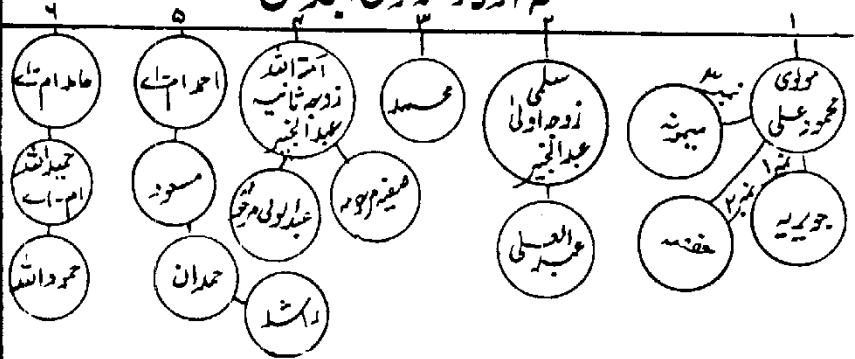 ۱ ۲ ۳ ۴ ۵ ۶
مولوی
محمود علی
نمبر ۱
جویریہ
نمبر ۲
حفصہ
نمبر ۳
میمونہ
سلمی
زوجہ اولیٰ
عبدالخیر
عبد العلی
محمد
امۃ اللہ
زوجہ ثانیہ
عبدالخیر
صفیہ مرحومہ
عبدالولی مرحوم
احمد ام اے
مسعود
حمدان
راشد
حامد ام اے
حمید اللہ
ام-اے
حمود اللہ